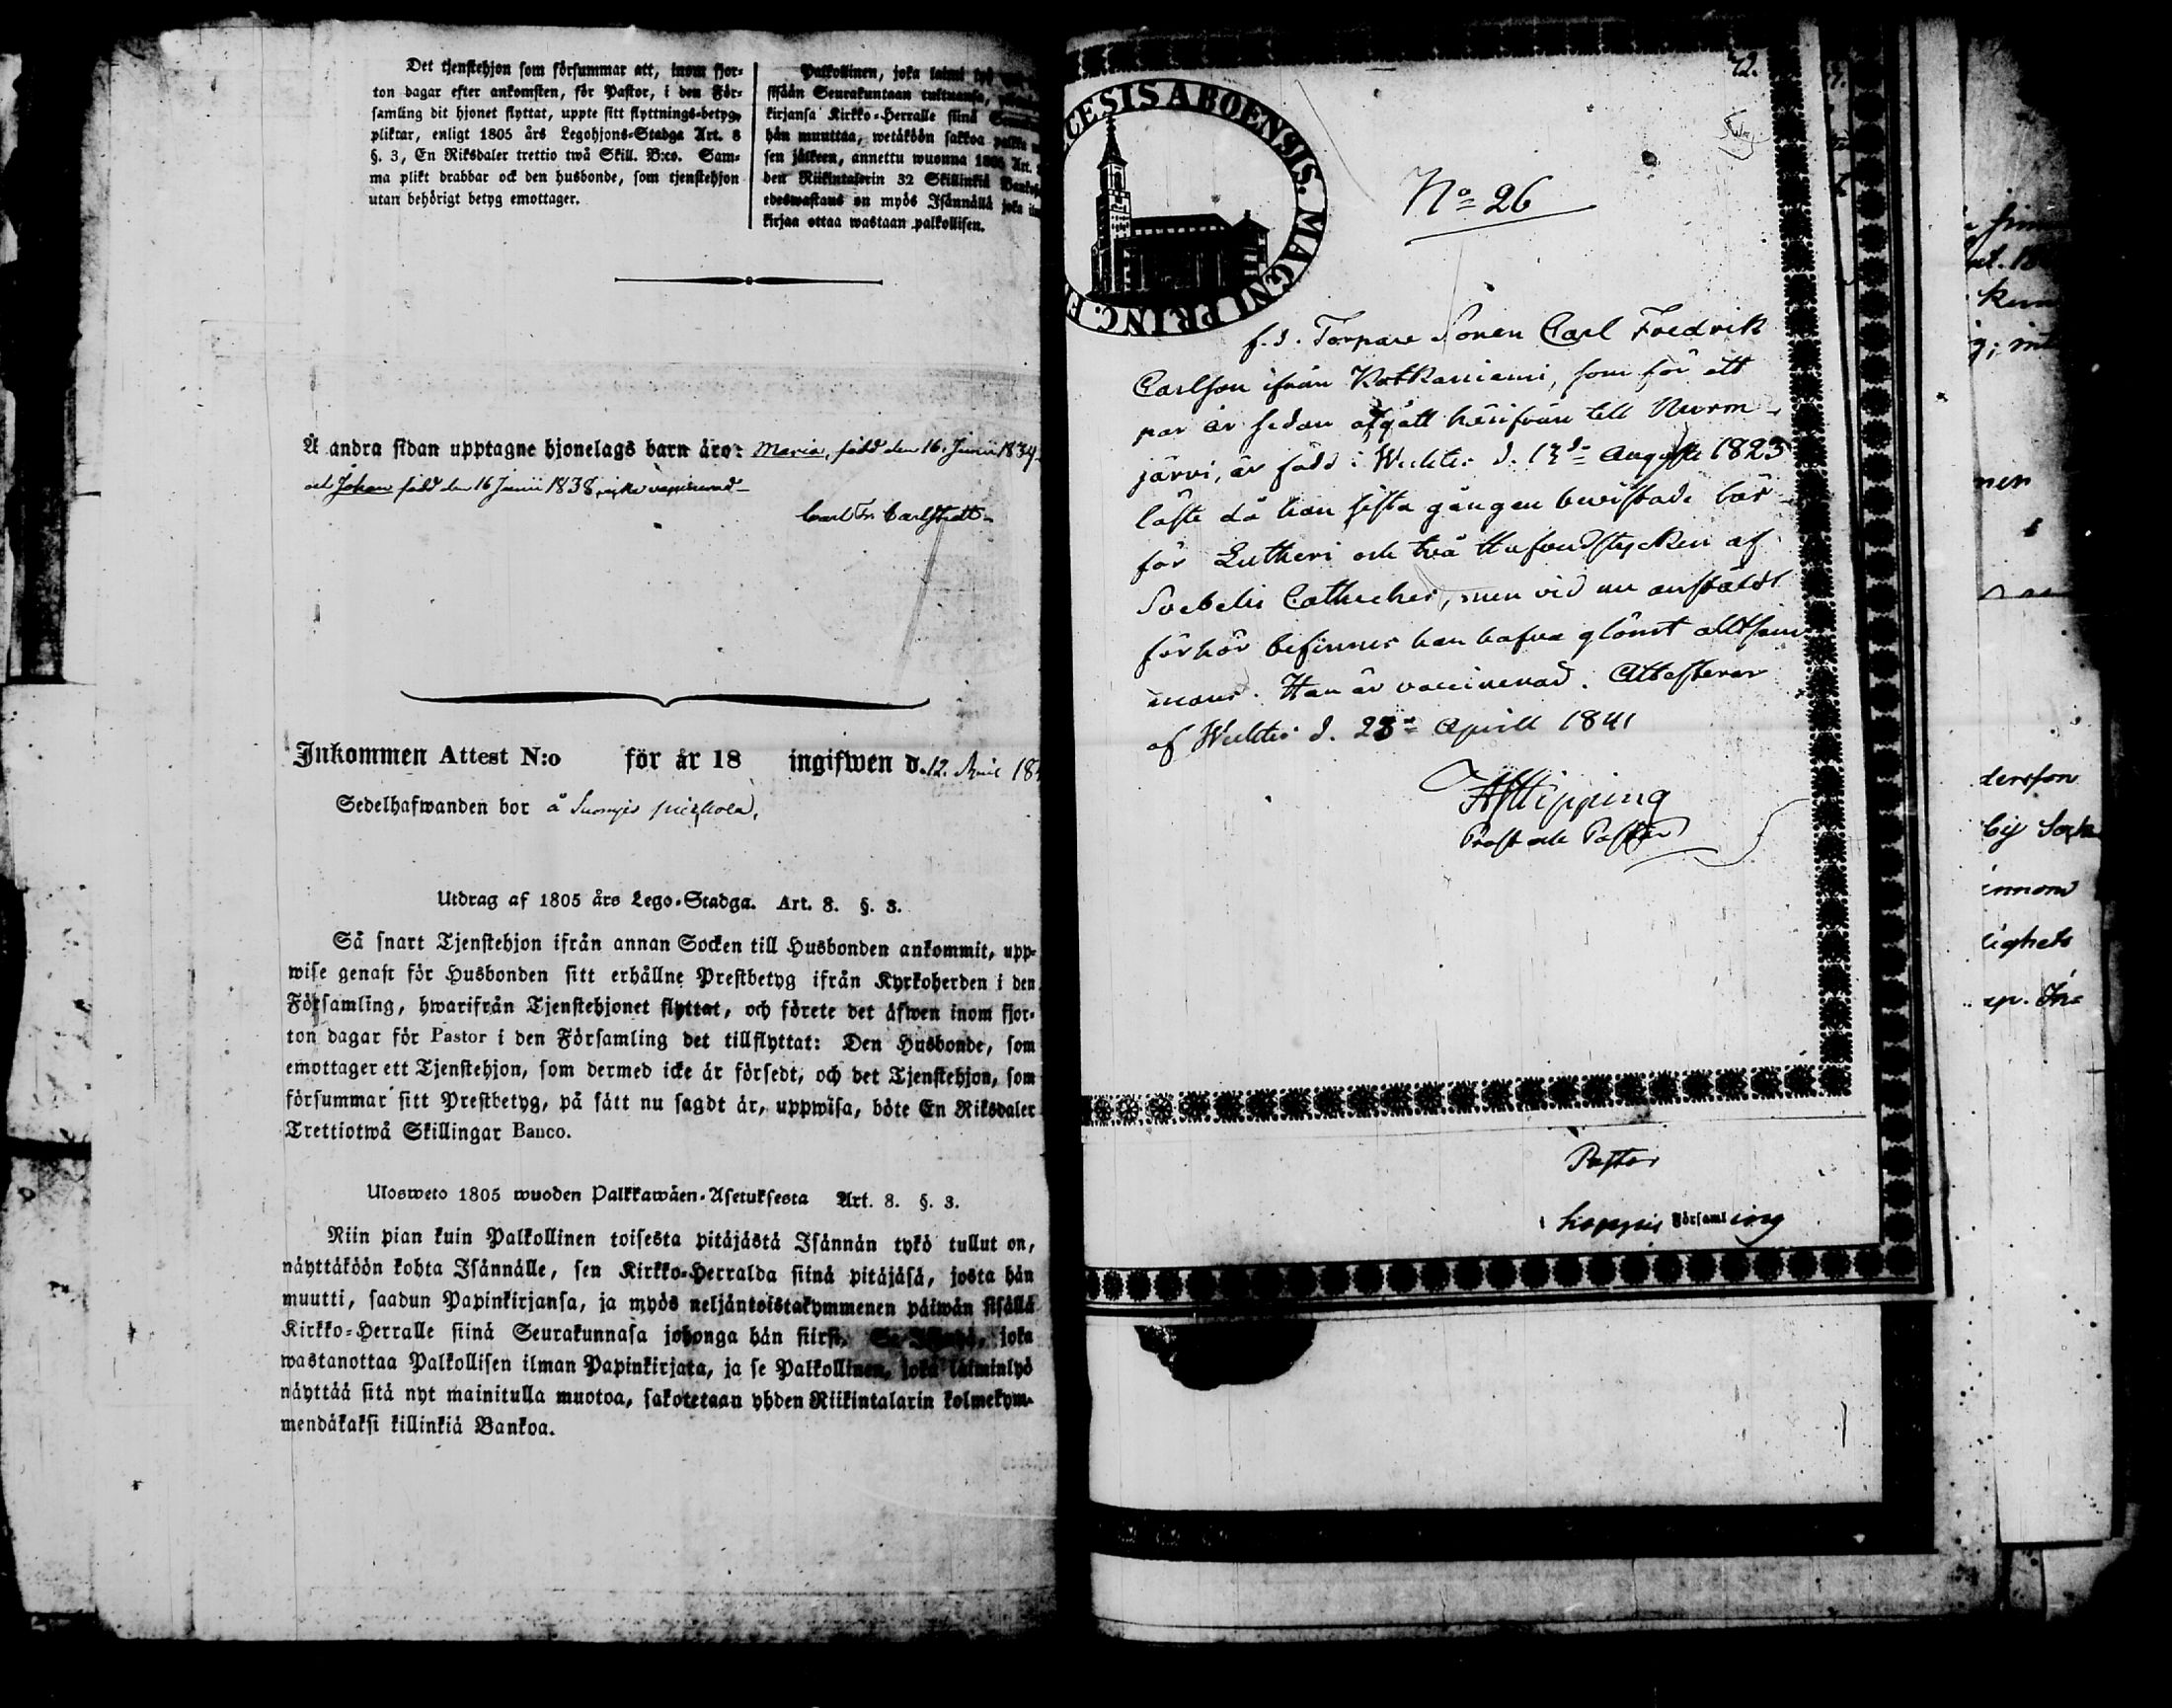 Det tjenstehjon som försummar att, inom fjor-
ton dagar efter ankomsten, för Pastor, i den För-
samling dit hjonet flyttat, uppte sitt flyttnings-betyg,
pliktar, enligt 1805 års Legohjons-Stadga Art. 8
§. 3, En Riksdaler trettio twå Skill. B:co. Sam-
ma plikt drabbar ock den husbonde, som tjenstehjon
utan behörigt betyg emottager.
Palkollinen, joka laimi
sisään Seurakuntaan tultuansa,
kirjansa Kirkko-Herralle siinä
hän muuttaa, wetäköön sakkoa
sen jälkeen, annettu wuonna 1805 Art.
den Riikintalerin 32 Skillinkiä
edeswastaus on myös Isännällä joka
kirjaa ottaa wastaan palkollisen.
Å andra sidan upptagne hjonelags barn äro: Maria, född den 16. Junii 1834
och Johan född den 16 Junii 1838, icke vaccinerad
Carl Fr. Carlstedt
Inkommen Attest N:o för år 18 ingifwen d. 12. 18
Sedelhafwanden bor å
Utdrag af 1805 års Lego-Stadga. Art. 8. §. 3.
Så snart Tjenstehjon ifrån annan Socken till Husbonden ankommit, upp-
wise genast för Husbonden sitt erhållne Prestbetyg ifrån Kyrkoherden i den
Församling, hwarifrån Tjenstehjonet flyttat, och förete det äfwen inom fjor-
ton dagar för Pastor i den Församling det tillflyttat: Den Husbonde, som
emottager ett Tjenstehjon, som dermed icke är försedt, och det Tjenstehjon, som
försummar sitt Prestbetyg, på sätt nu sagdt är, uppwisa, böte En Riksdaler
Trettiotwå Skillingar Banco.
Ulosweto 1805 wuoden Palkkawäen-Asetuksesta Art. 8. §. 3.
Niin pian kuin Palkollinen toisesta pitäjästä Isännän tykö tullut on,
näyttäköön kohta Isännälle, sen Kirkko-Herralda siinä pitäjäsä, josta hän
muutti, saadun Papinkirjansa, ja myös neljäntoistakymmenen päiwän sisällä
Kirkko-Herralle siinä Seurakunnasa johonga hän siirsi, Se Isäntä, joka
wastanottaa Palkollisen ilman Papinkirjata, ja se Palkollinen, joka laiminlyö
näyttää sitä nyt mainitulla muotoa, sakotetaan yhden Riikintalarin kolmekym-
mendäkaksi killinkiä Bankoa.
42.
CESIS ABOENSIS. MAGNI PRINC.
No 26
f.d. Torpare Sonen Carl Fredrik
Carlson ifrån Kotkaniemi, som för ett
par år sedan afgått härifrån till Nurm-
järvi, är född i Wichtis d. 13de Augusti 1823
läste då han sista gången bevistade läs-
för Lutheri och två Hufvudstycken af
Svebelii Catheches, men vid nu anstäldt
förhör befinnes han hafva glömt alltsam
mans. Han är vaccinerad. Attesterar
af Wichtis d. 28de Aprill 1841
Hipping
Prost och Pastor
Pastor
i Loppis Församling
dersson
innom
lighets